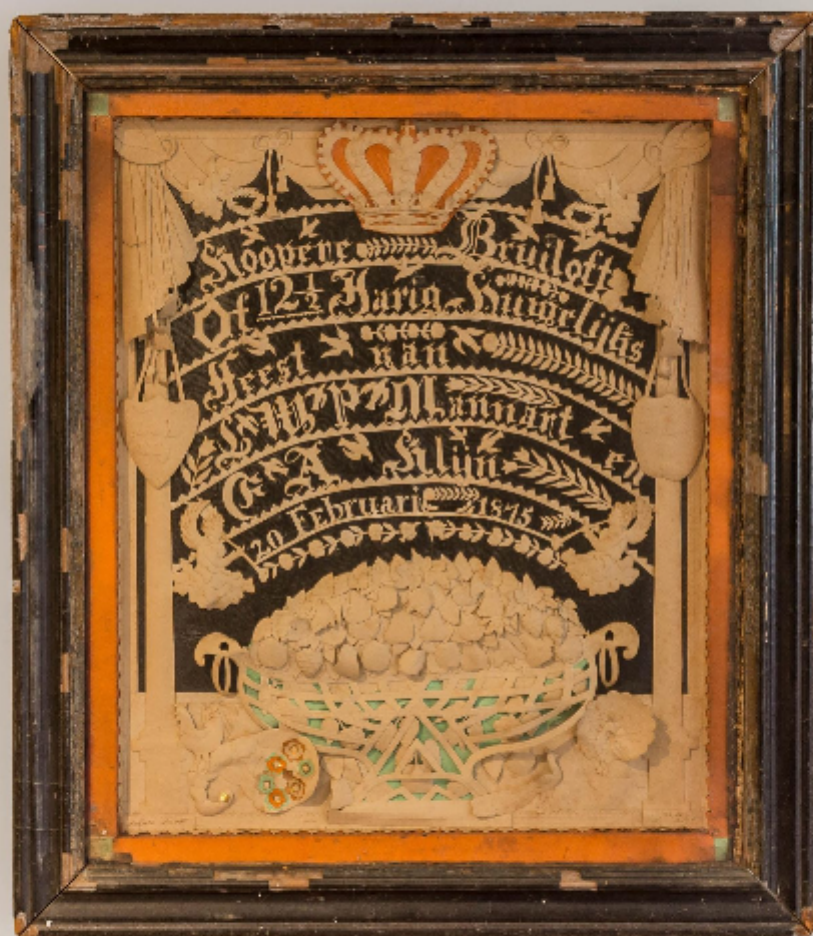 Koopere Bruiloft
Of 12½ Jarig Huwelijks
Feest van
L W P Mannart en
G A Klijn
20 Februari 1875